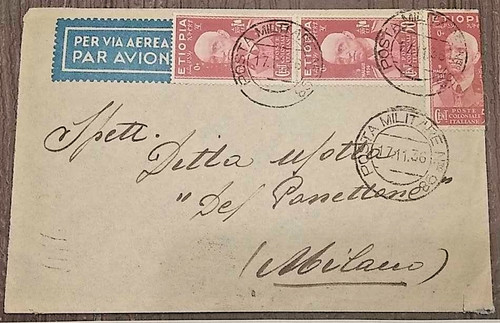 PER VIA AEREA
PAR AVION
ETIOPIA
ETIOPIA
ETIOPIA
POSTE
COLONIALI
ITALIANE
POSTA MILITARE
POSTA MILITARE
POSTA MILITARE N° 68
17.11.36
Spett.
Ditta Motta
"Del Panettone"
(Milano)